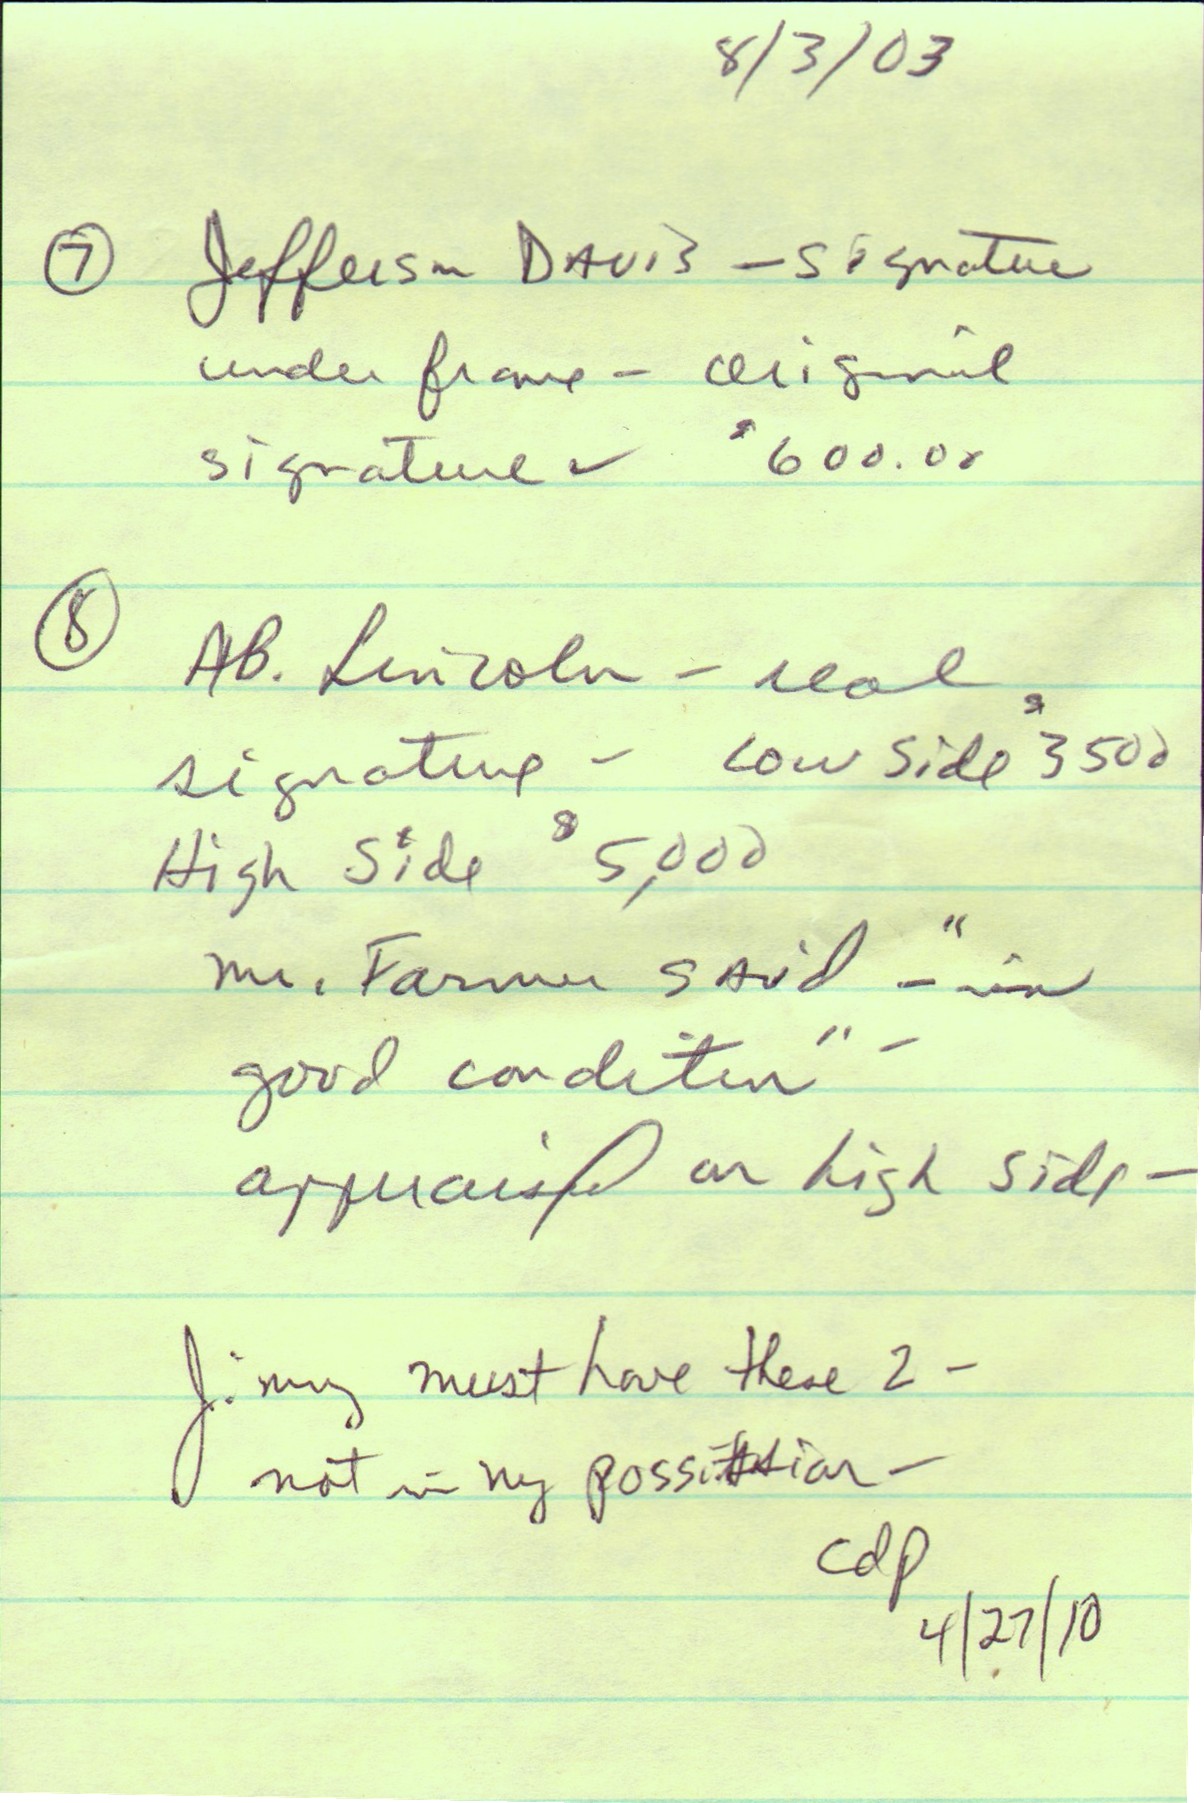 8/3/03
7 Jefferson DAVIS - signature
under frame - original
signature - $600.00
8
AB. Lincoln - real
signature - Low Side $3500
High Side $5,000
Mr. Farmer said - "in
good condition" -
appraised on high side -
Jimmy must have these 2 -
not in my possission -
cdp
4/27/10